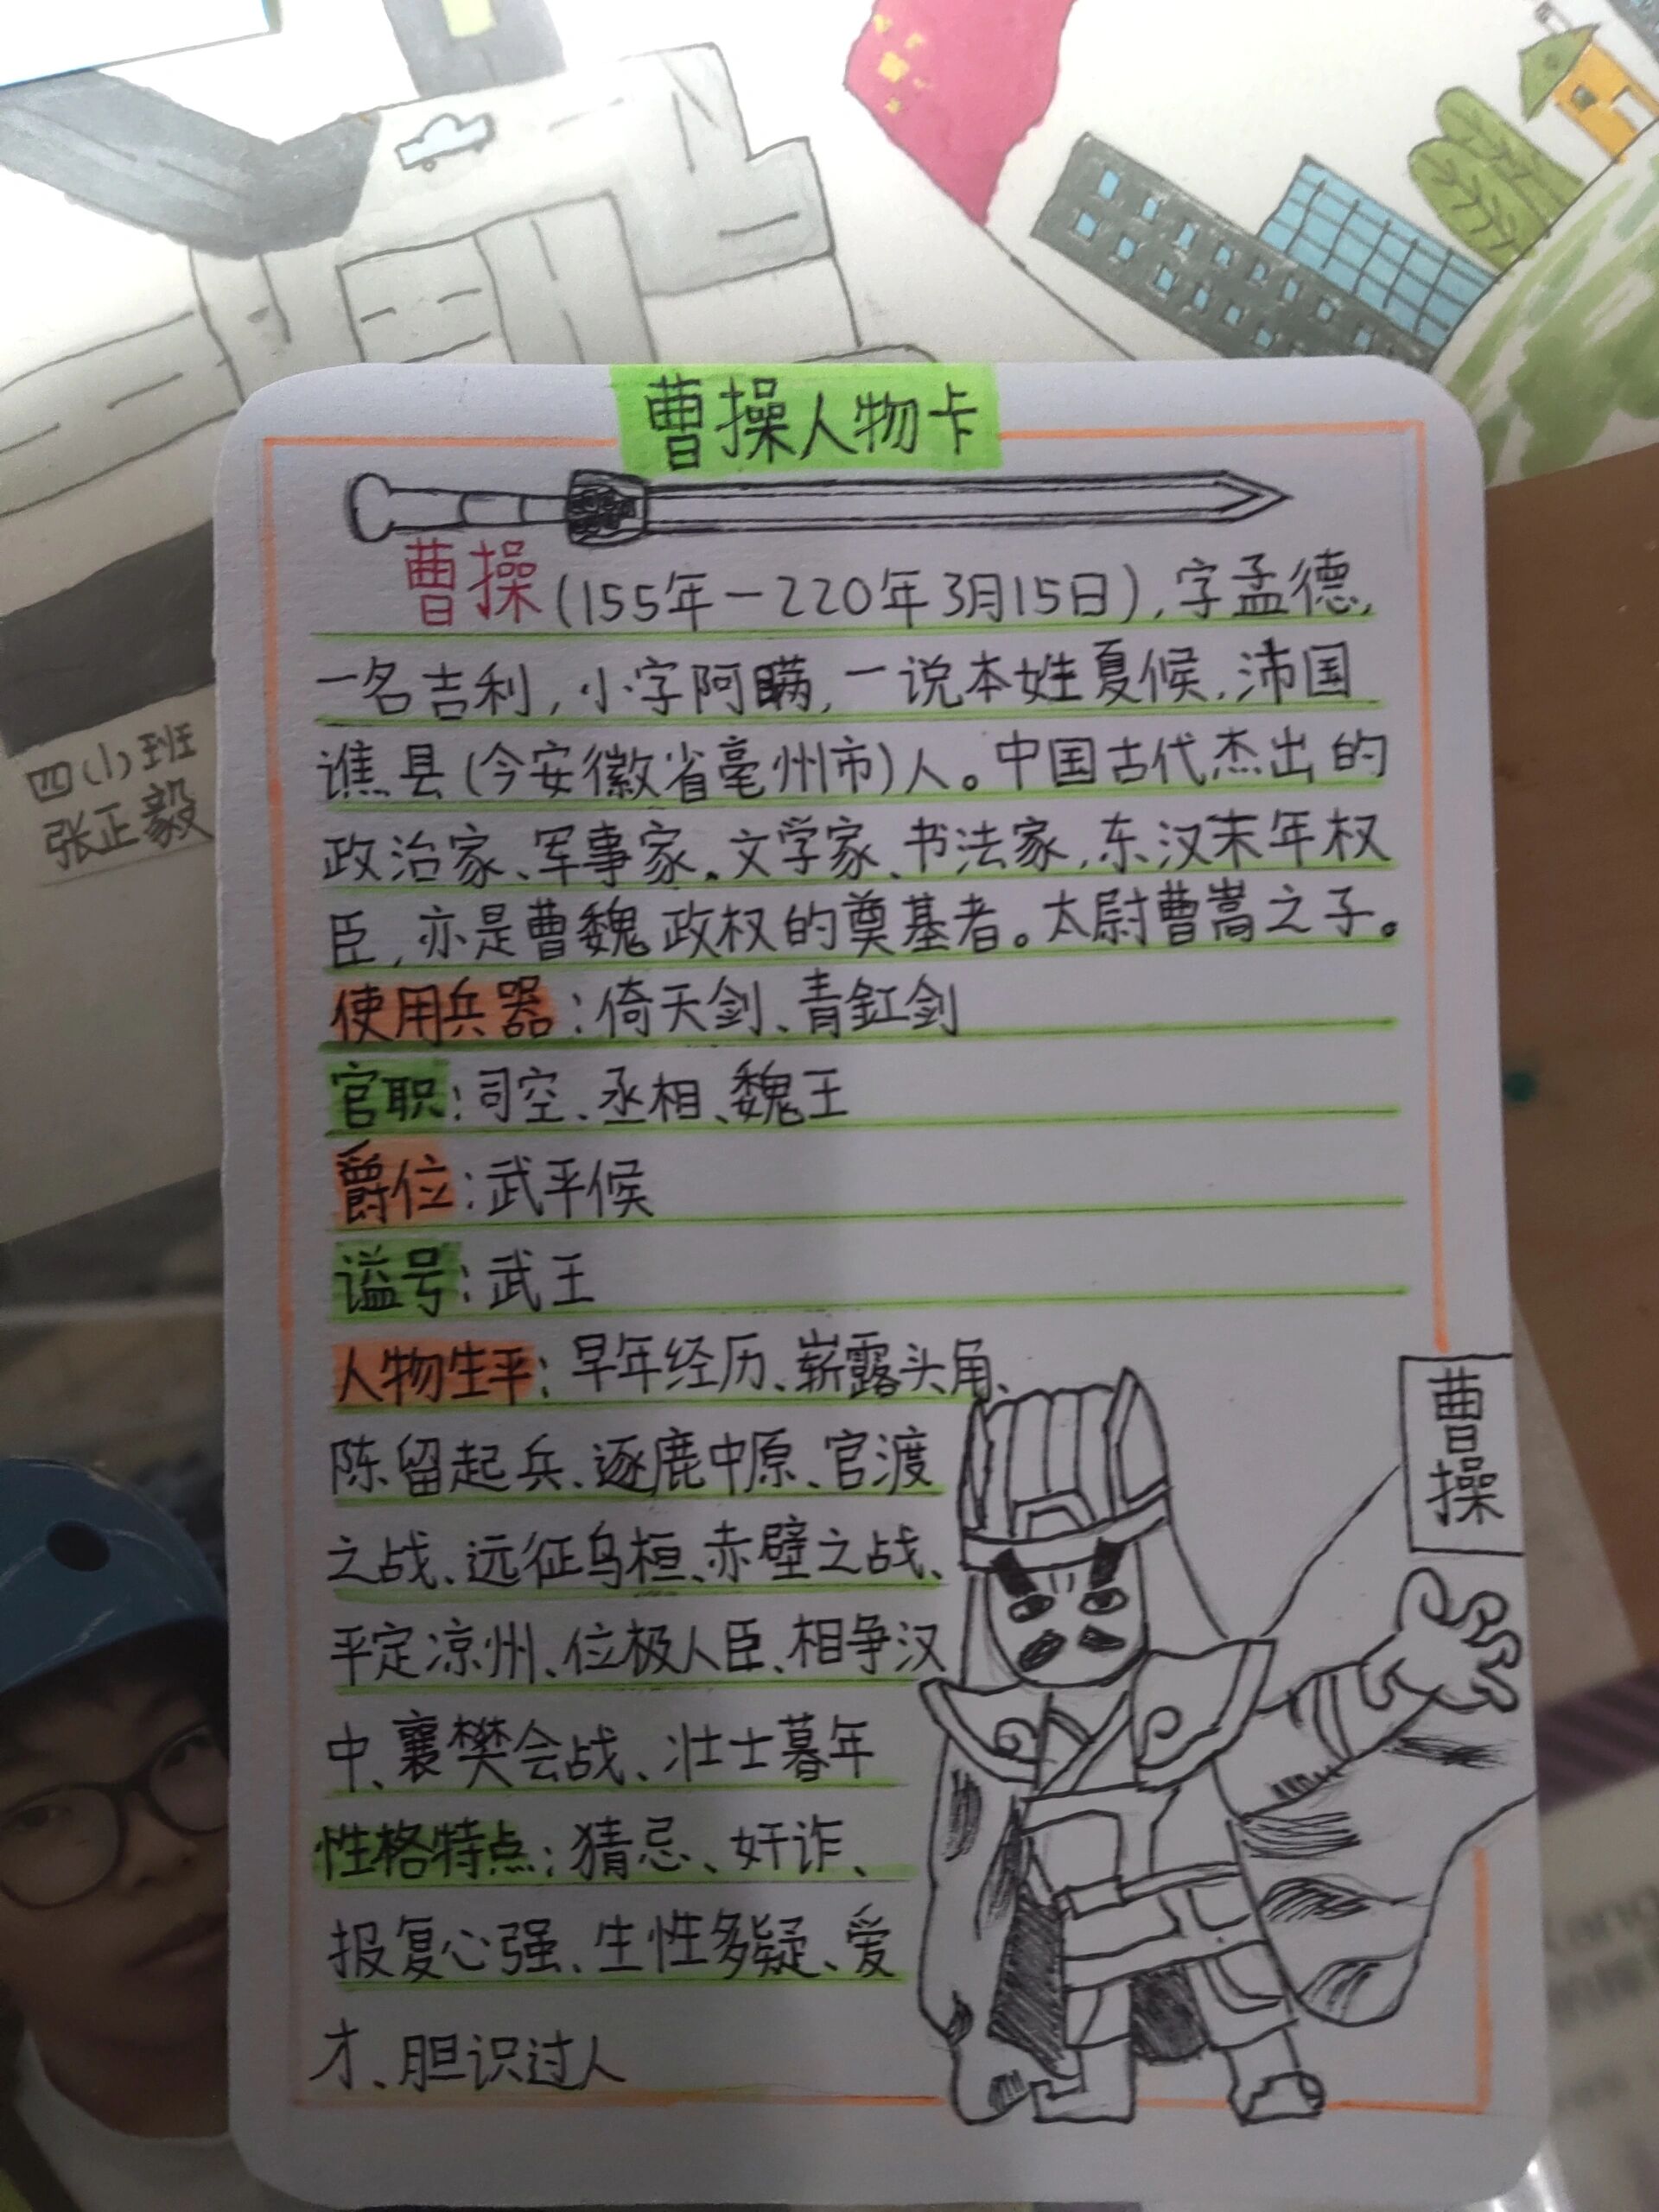 曹操人物卡
曹操(155年-220年3月15日),字孟德,
一名吉利,小字阿瞒,一说本姓夏候,沛国
谯县(今安徽省亳州市)人。中国古代杰出的
政治家、军事家、文学家、书法家,东汉末年权
臣,亦是曹魏政权的奠基者。太尉曹嵩之子。
使用兵器:倚天剑、青釭剑
官职:司空、丞相、魏王
爵位:武平候
谥号:武王
人物生平:早年经历、崭露头角、
陈留起兵、逐鹿中原、官渡
之战、远征乌桓、赤壁之战、
平定凉州、位极人臣、相争汉
中、襄樊会战、壮士暮年
性格特点:猜忌、奸诈、
报复心强、生性多疑、爱
才、胆识过人
曹操
四(1)班
张正毅